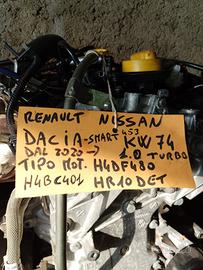 RENAULT NISSAN
DACIA-SMART 453 KW 74
DAL 2020→ 1.0 TURBO
TIPO MOT. H4DF480
H4BC401 HR10DET